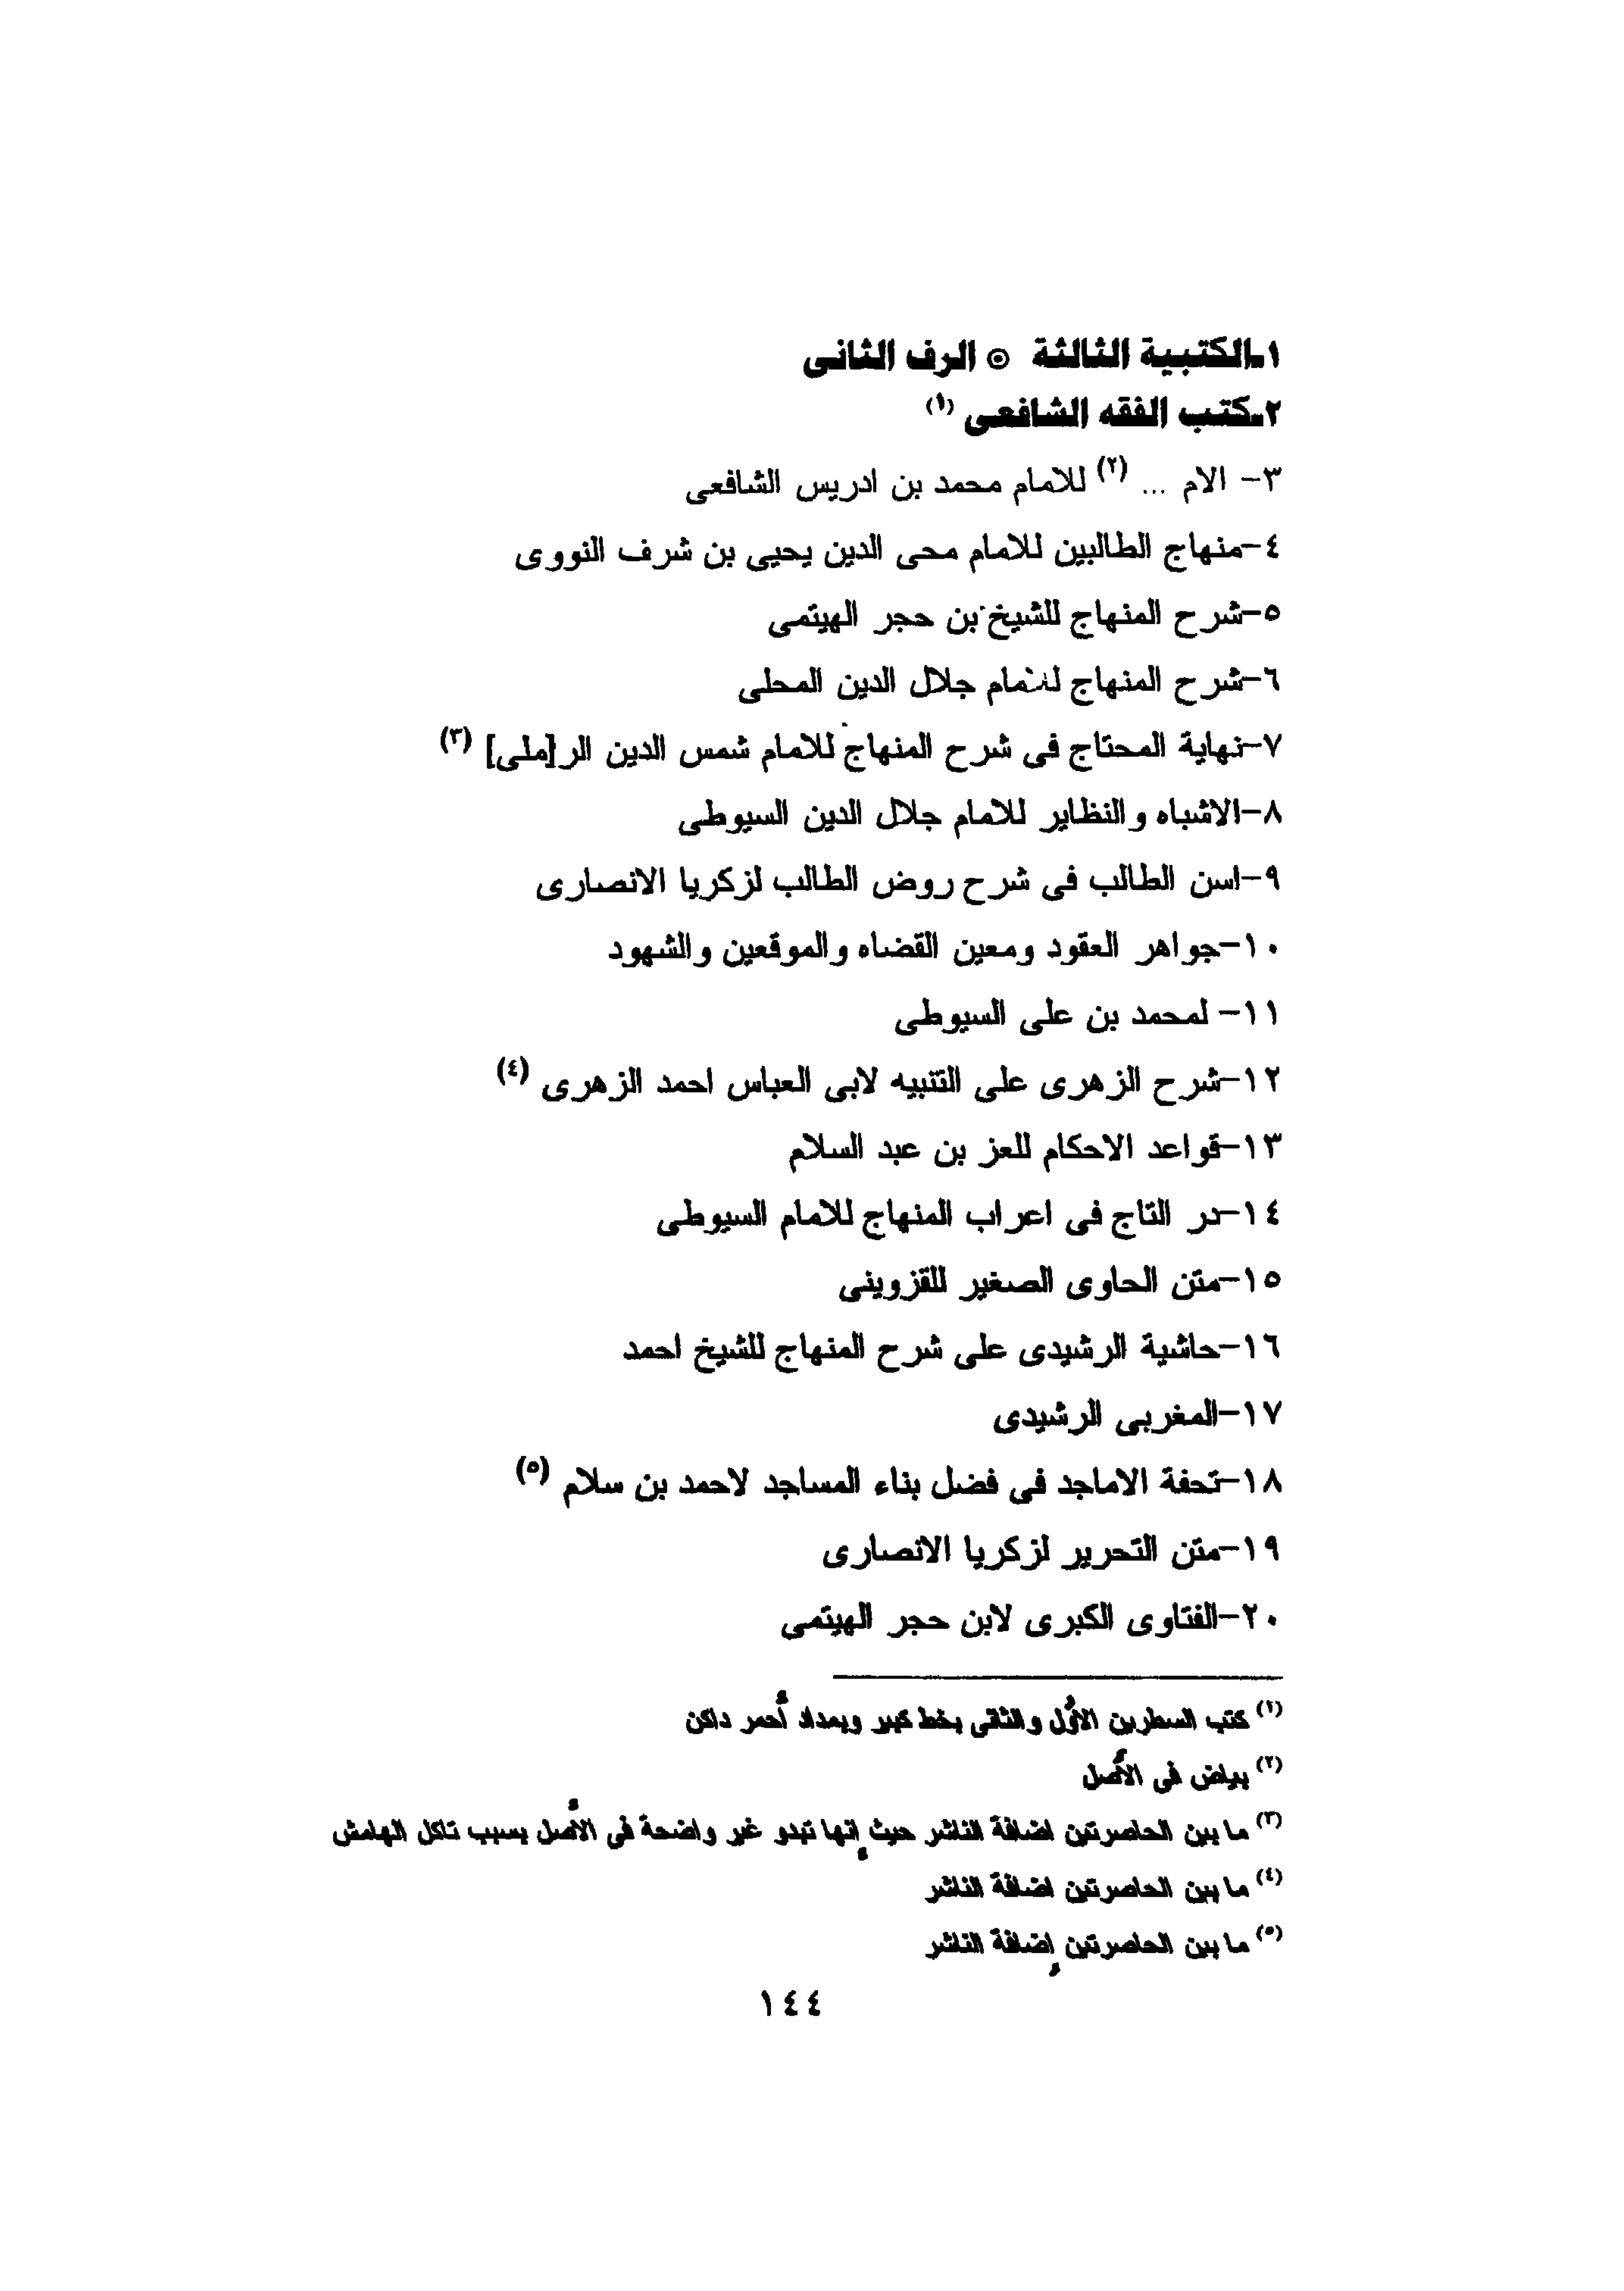 ١-الكتبية الثالثة ⊙ الرف الثانى
٢-كتب الفقه الشافعى (١)
٣- الام ... (٢) للامام محمد بن ادريس الشافعى
٤-منهاج الطالبين للامام محى الدين يحيى بن شرف النووى
٥-شرح المنهاج للشيخ بن حجر الهيتمى
٦-شرح المنهاج للامام جلال الدين المحلى
٧-نهاية المحتاج فى شرح المنهاج للامام شمس الدين الر[ملى] (٣)
٨-الاشباه والنظاير للامام جلال الدين السيوطى
٩-اسن الطالب فى شرح روض الطالب لزكريا الانصارى
١٠-جواهر العقود ومعين القضاه والموقعين والشهود
١١- لمحمد بن على السيوطى
١٢-شرح الزهرى على التنبيه لابى العباس احمد الزهرى (٤)
١٣-قواعد الاحكام للعز بن عبد السلام
١٤-در التاج فى اعراب المنهاج للامام السيوطى
١٥-متن الحاوى الصغير للقزوينى
١٦-حاشية الرشيدى على شرح المنهاج للشيخ احمد
١٧-المغربى الرشيدى
١٨-تحفة الاماجد فى فضل بناء المساجد لاحمد بن سلام (٥)
١٩-متن التحرير لزكريا الانصارى
٢٠-الفتاوى الكبرى لابن حجر الهيتمى
(١) كتب السطرين الأول والثانى بخط كبير وبمداد أحمر داكن
(٢) بياض فى الأصل
(٣) ما بين الحاصرتين اضافة الناشر حيث إنها تبدو غير واضحة فى الأصل بسبب تاكل الهامش
(٤) ما بين الحاصرتين اضافة الناشر
(٥) ما بين الحاصرتين إضافة الناشر
١٤٤